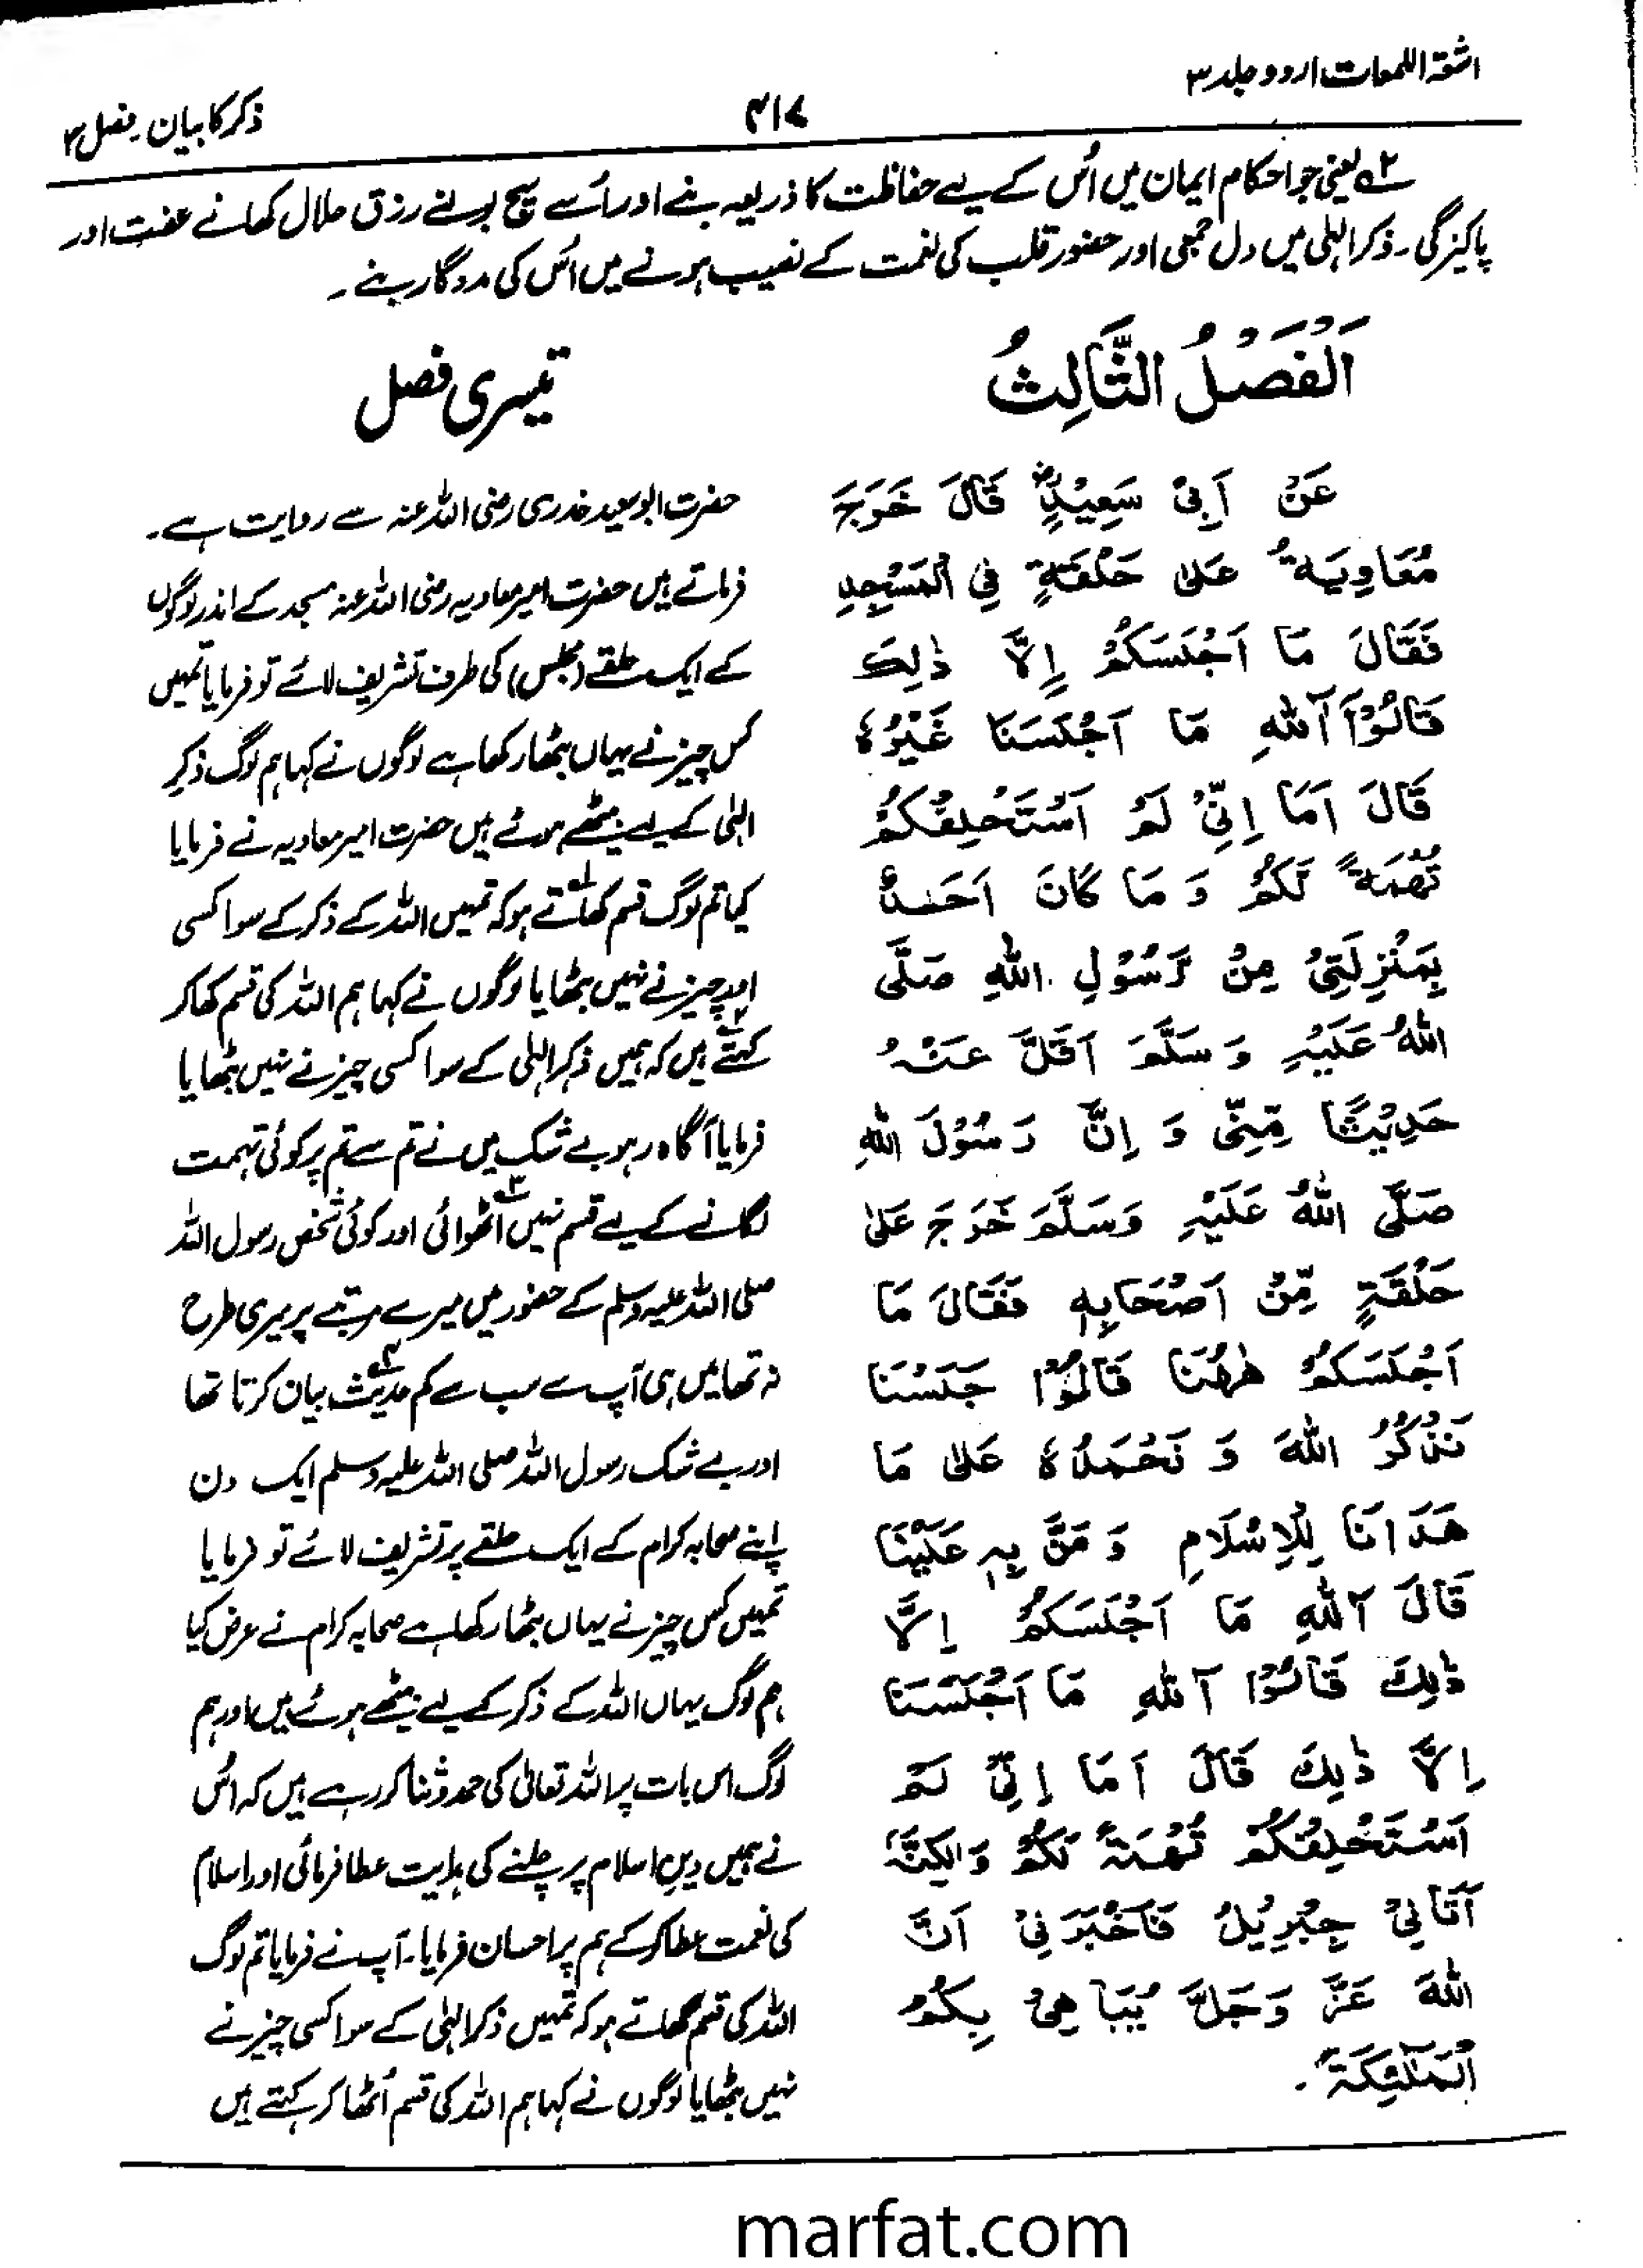 اشعۃ اللمعات اردو جلد ۳
۴۱۷
ذکر کا بیان۔ فصل ۳
۲؎ یعنی جو احکام ایمان میں اُس کے لیے حفاظت کا ذریعہ بنے اور اُسے سچ بولنے رزق حلال کھانے عفت اور
پاکیزگی۔ ذکر الٰہی میں دل جمعی اور حضور قلب کی نعمت کے نصیب ہونے میں اُس کی مددگار بنے۔
اَلْفَصْلُ الثَّالِثُ
عَنْ اَبِیْ سَعِیْدٍؓ قَالَ خَرَجَ
مُعَاوِیَۃُ عَلٰی حَلْقَۃٍ فِی الْمَسْجِدِ
فَقَالَ مَا اَجْلَسَكُمْ اِلَّا ذٰلِكَ
قَالُوْا آللهِ مَا اَجْلَسَنَا غَیْرُہٗ
قَالَ اَمَا اِنِّیْ لَمْ اَسْتَحْلِفْكُمْ
تُهْمَۃً لَّكُمْ وَ مَا كَانَ اَحَدٌ
بِمَنْزِلَتِیْ مِنْ رَّسُوْلِ اللهِ صَلَّی
اللهُ عَلَیْہِ وَ سَلَّمَ اَقَلَّ عَنْہُ
حَدِیْثًا مِّنِّیْ وَ اِنَّ رَسُوْلَ اللهِ
صَلَّی اللهُ عَلَیْہِ وَسَلَّمَ خَرَجَ عَلٰی
حَلْقَۃٍ مِّنْ اَصْحَابِہٖ فَقَالَ مَا
اَجْلَسَكُمْ هٰهُنَا قَالُوْا جَلَسْنَا
نَذْكُرُ اللهَ وَ نَحْمَدُہٗ عَلٰی مَا
هَدَانَا لِلْاِسْلَامِ وَ مَنَّ بِہٖ عَلَیْنَا
قَالَ آللهِ مَا اَجْلَسَكُمْ اِلَّا
ذٰلِكَ قَالُوْا آللهِ مَا اَجْلَسَنَا
اِلَّا ذٰلِكَ قَالَ اَمَا اِنِّیْ لَمْ
اَسْتَحْلِفْكُمْ تُهْمَۃً لَّكُمْ وَلٰكِنَّہٗ
اَتَانِیْ جِبْرِیْلُ فَاَخْبَرَنِیْ اَنَّ
اللهَ عَزَّ وَجَلَّ یُبَاهِیْ بِكُمُ
الْمَلٰٓئِكَۃَ۔
تیسری فصل
حضرت ابو سعید خدری رضی اللہ عنہ سے روایت ہے۔
فرماتے ہیں حضرت امیر معاویہ رضی اللہ عنہ مسجد کے اندر لوگوں
کے ایک حلقے (مجلس) کی طرف تشریف لائے تو فرمایا تمہیں
کس چیز نے یہاں بٹھا رکھا ہے لوگوں نے کہا ہم لوگ ذکرِ
الٰہی کے لیے بیٹھے ہوئے ہیں حضرت امیر معاویہ نے فرمایا
کیا تم لوگ قسم کھاتے۱؎ ہو کہ تمہیں اللہ کے ذکر کے سوا کسی
اور چیز نے نہیں بٹھایا لوگوں نے کہا ہم اللہ کی قسم کھا کر
کہتے۲؎ ہیں کہ ہمیں ذکر الٰہی کے سوا کسی چیز نے نہیں بٹھایا
فرمایا آگاہ رہو بے شک میں نے تم سے تم پر کوئی تہمت
لگانے کے لیے قسم نہیں۳؎ اٹھوائی اور کوئی شخص رسول اللہ
صلی اللہ علیہ وسلم کے حضور میں میرے مرتبے پر میری طرح
نہ تھا میں ہی آپ سے سب سے کم حدیث۴؎ بیان کرتا تھا
اور بے شک رسول اللہ صلی اللہ علیہ وسلم ایک دن
اپنے صحابہ کرام کے ایک حلقے پر تشریف لائے تو فرمایا
تمہیں کس چیز نے یہاں بٹھا رکھا ہے صحابہ کرام نے عرض کیا
ہم لوگ یہاں اللہ کے ذکر کے لیے بیٹھے ہوئے ہیں اور ہم
لوگ اس بات پر اللہ تعالیٰ کی حمد و ثنا کر رہے ہیں کہ اُس
نے ہمیں دینِ اسلام پر چلنے کی ہدایت عطا فرمائی اور اسلام
کی نعمت عطا کر کے ہم پر احسان فرمایا۔ آپ نے فرمایا تم لوگ
اللہ کی قسم کھاتے ہو کہ تمہیں ذکر الٰہی کے سوا کسی چیز نے
نہیں بٹھایا لوگوں نے کہا ہم اللہ کی قسم اُٹھا کر کہتے ہیں
marfat.com